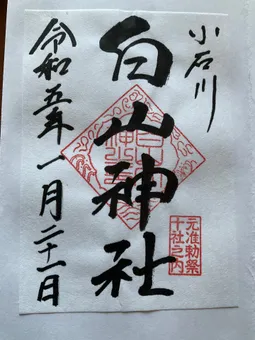 小石川
白山神社
令和五年一月二十一日
元准勅祭
十社之内